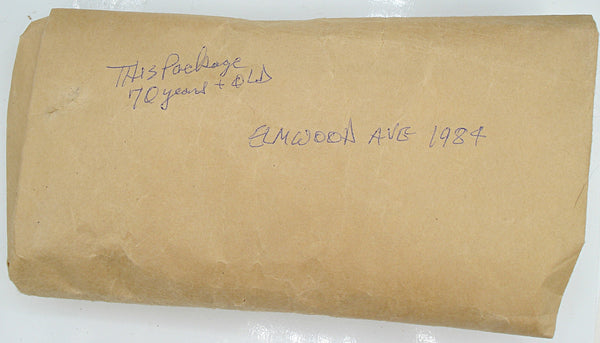 THIS Package
70 years + OLD
ELMWOOD AVE 1984